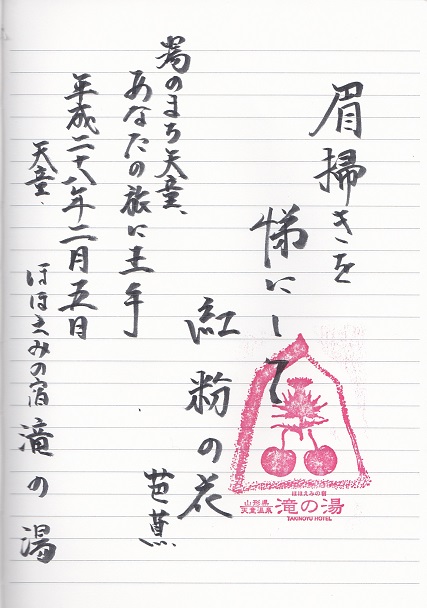 眉掃きを
悌にして
紅粉の花
芭蕉
湯のまち天童、
あなたの旅に王手
平成二十八年二月五日
天童・ほほゑみの宿 滝の湯
ほほえみの宿
山形県
天童温泉
滝の湯
TAKINOYU HOTEL